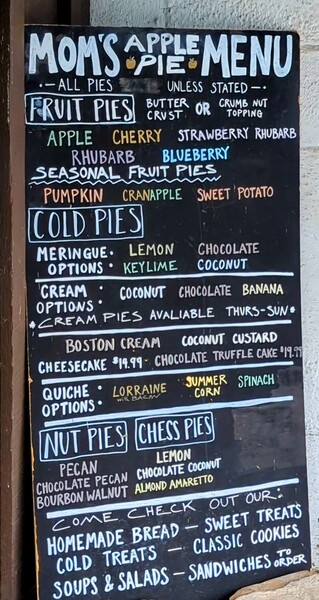 MOM'S APPLE PIE MENU
- ALL PIES UNLESS STATED -
FRUIT PIES BUTTER CRUST OR CRUMB NUT TOPPING
APPLE CHERRY STRAWBERRY RHUBARB
RHUBARB BLUEBERRY
SEASONAL FRUIT PIES
PUMPKIN CRANAPPLE SWEET POTATO
COLD PIES
MERINGUE OPTIONS: LEMON CHOCOLATE
KEYLIME COCONUT
CREAM OPTIONS: COCONUT CHOCOLATE BANANA
*CREAM PIES AVALIABLE THURS-SUN*
BOSTON CREAM COCONUT CUSTARD
CHEESECAKE $19.99 - CHOCOLATE TRUFFLE CAKE $19.99
QUICHE OPTIONS: LORRAINE WITH BACON SUMMER CORN SPINACH
NUT PIES
PECAN
CHOCOLATE PECAN
BOURBON WALNUT
CHESS PIES
LEMON
CHOCOLATE COCONUT
ALMOND AMARETTO
COME CHECK OUT OUR:
HOMEMADE BREAD - SWEET TREATS
COLD TREATS - CLASSIC COOKIES
SOUPS & SALADS - SANDWICHES TO ORDER